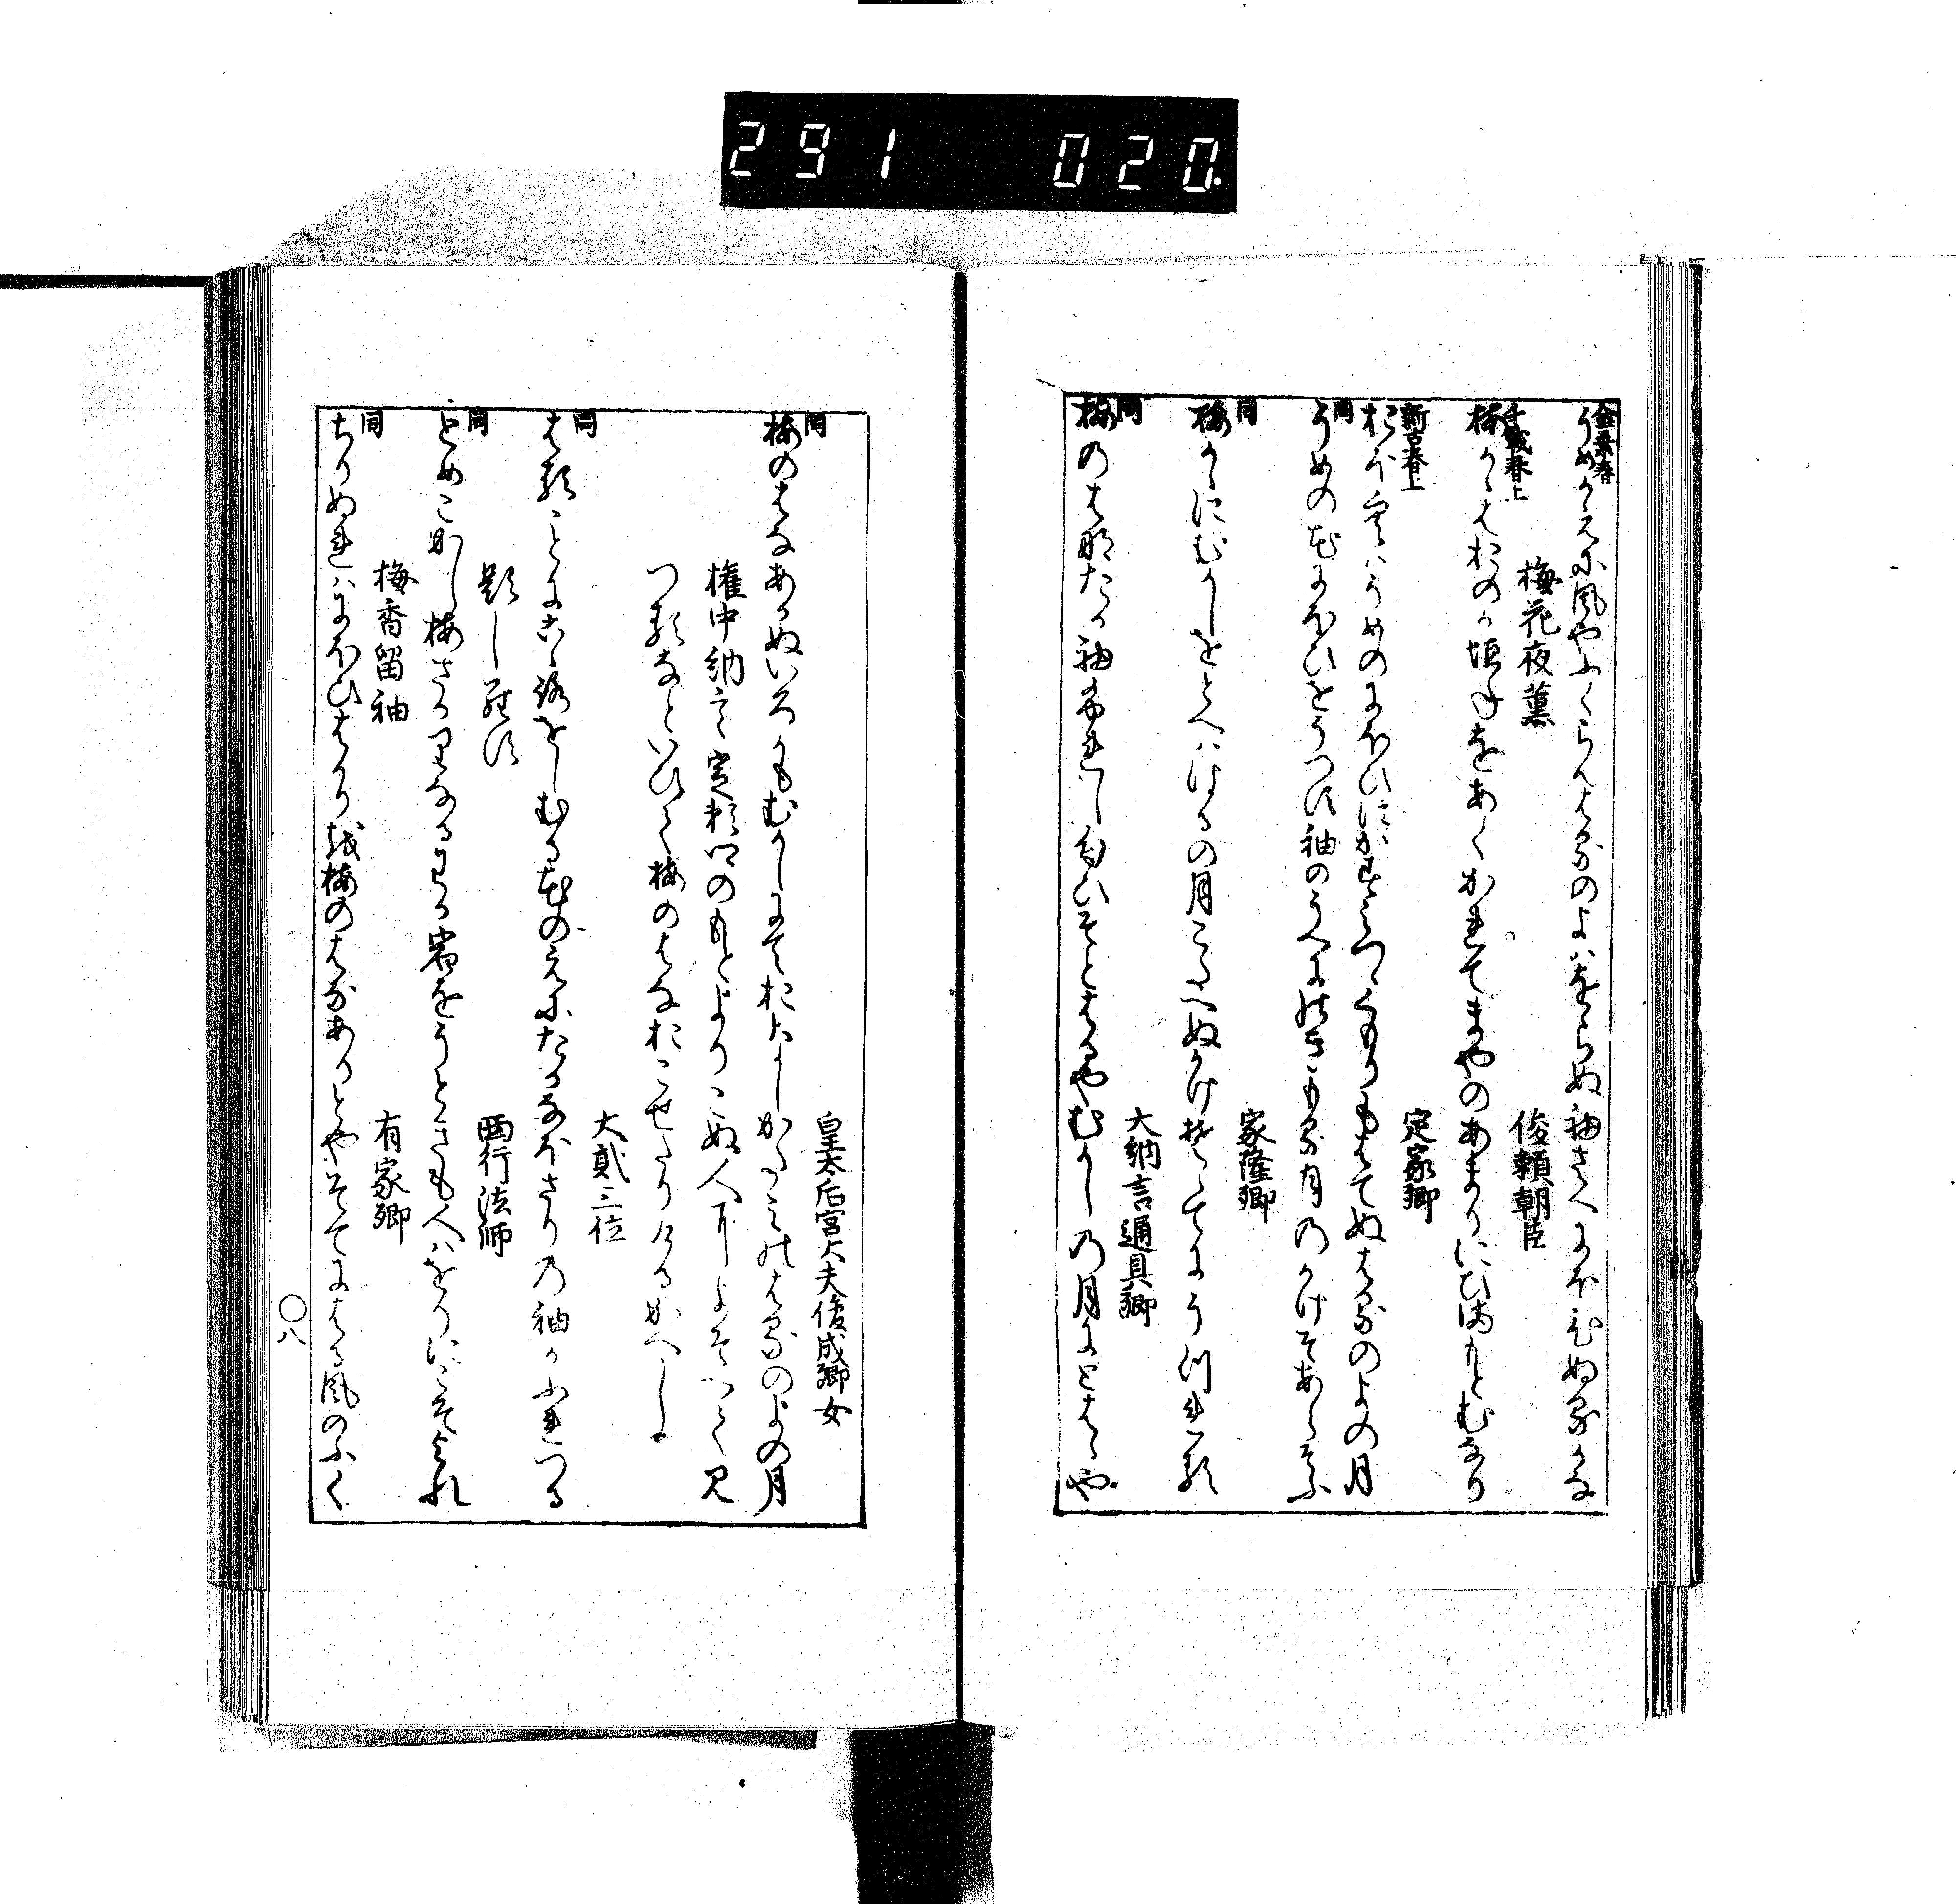 291 020
金葉春
うめかえに風やふくらんはるのよはをらぬ袖さへにほひぬるかな
梅花夜薫 俊頼朝臣
千載春上
梅かゝはおのか垣ねをあくかれてまやのあまりにひまもとむなり
定家卿
新古春上
おほ空はうめのにほひにかすみつゝくもりもはてぬはるのよの月
同
うめの花にほひをうつす袖のうへにのきもる月のかけそあらそふ
家隆卿
同
梅かゝにむかしをとへははるの月こたへぬかけそそてにうつれる
大納言通具卿
同
梅のはなたか袖ふれし匂ひそとはるやむかしの月にとはゝや
皇太后宮大夫俊成卿女
同
梅のはなあかぬいろかもむかしにておなしかたみのはるのよの月
権中納言定頼卿のもとよりこぬ人によそへて見
つるなといひて梅のはなおこせたりけるかへし
大貳三位
同
はることにこゝろをしむる花のえにたかなほさりの袖かふれつる
題しらす 西行法師
同
とめこかし梅さかりなるわか宿をうときも人はをりにこそよれ
梅香留袖 有家卿
同
ちりぬれはにほひはかりを梅のはなありとやそてにはる風のふく
〇八